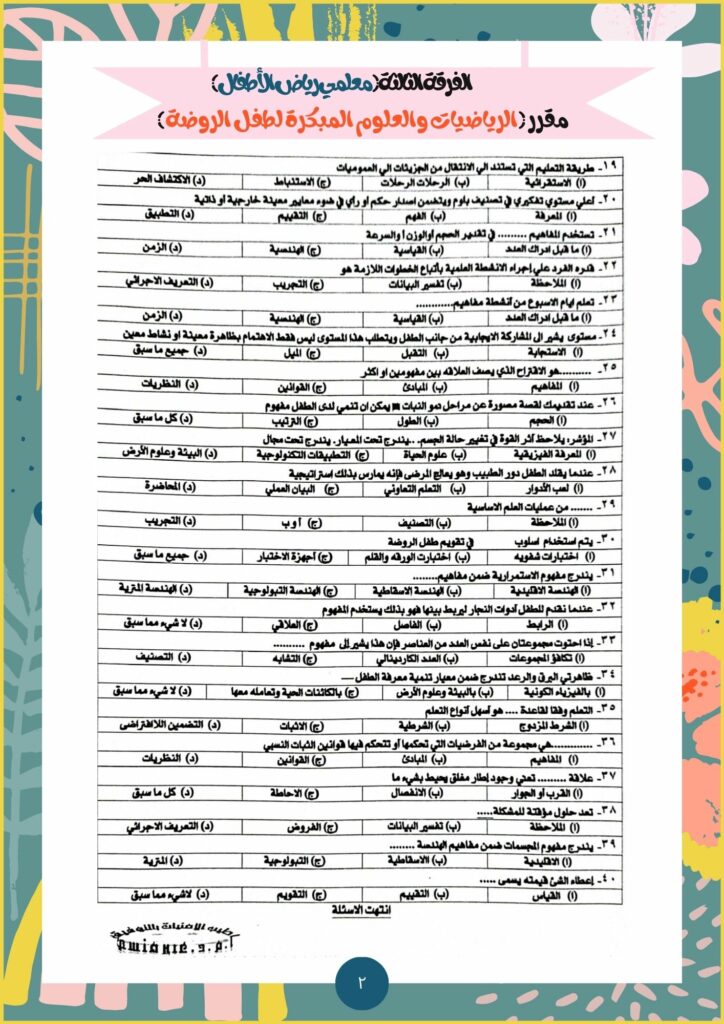 الفرقة الثالثة (معلمي رياض الأطفال)
مقرر (الرياضيات والعلوم المبكرة لطفل الروضة)
١٩- طريقة التعليم التي تستند الي الانتقال من الجزيئات الي العموميات
(ا) الاستقرائية (ب) الرحلات الرحلات (ج) الاستنباط (د) الاكتشاف الحر
٢٠- أعلي مستوي تفكيري في تصنيف بلوم ويتضمن اصدار حكم أو رأي في ضوء معايير معينة خارجية أو ذاتية
(ا) المعرفة (ب) الفهم (ج) التقييم (د) التطبيق
٢١- تستخدم المفاهيم ......... في تقدير الحجم أوالوزن أ والسرعة
(ا) ما قبل ادراك العدد (ب) القياسية (ج) الهندسية (د) الزمن
٢٢- قدره الفرد علي إجراء الانشطة العلمية بأتباع الخطوات اللازمة هو
(ا) الملاحظة (ب) تفسير البيانات (ج) التجريب (د) التعريف الاجرائي
٢٣- تعلم ايام الاسبوع من أنشطة مفاهيم............
(ا) ما قبل ادراك العدد (ب) القياسية (ج) الهندسية (د) الزمن
٢٤- مستوى يشير الى المشاركة الايجابية من جانب الطفل ويتطلب هذا المستوى ليس فقط الاهتمام بظاهرة معينة او نشاط معين
(ا) الاستجابة (ب) التقبل (ج) الميل (د) جميع ما سبق
٢٥- ..........هو الاقتراح الذي يصف العلاقه بين مفهومين او اكثر
(ا) المفاهيم (ب) المبادئ (ج) القوانين (د) النظريات
٢٦- عند تقديمك لقصة مصورة عن مراحل نمو النبات يمكن ان تنمي لدى الطفل مفهوم
(ا) الحجم (ب) الطول (ج) الترتيب (د) كل ما سبق
٢٧- المؤشر: يلاحظ أثر القوة في تغيير حالة الجسم. ..يندرج تحت المعيار. يندرج تحت مجال
(ا) المعرفة الفيزيقية (ب) علوم الحياة (ج) التطبيقات التكنولوجية (د) البيئة وعلوم الأرض
٢٨- عندما يقلد الطفل دور الطبيب وهو يعالج المرضى فإنه يمارس بذلك استراتيجية
(ا) لعب الأدوار (ب) التعلم التعاوني (ج) البيان العملي (د) المحاضرة
٢٩- ....... من عمليات العلم الاساسية
(ا) الملاحظة (ب) التصنيف (ج) أ و ب (د) التجريب
٣٠- يتم استخدام اسلوب في تقويم طفل الروضة
(ا) اختبارات شفويه (ب) اختبارت الورقه والقلم (ج) أجهزة الاختبار (د) جميع ما سبق
٣١- يندرج مفهوم الاستمرارية ضمن مفاهيم.........
(ا) الهندسة الاقليدية (ب) الهندسة الاسقاطية (ج) الهندسة التبولوجية (د) الهندسة المترية
٣٢- عندما نقدم للطفل أدوات النجار ليربط بينها فهو بذلك يستخدم المفهوم
(ا) الرابط (ب) الفاصل (ج) العلاقي (د) لا شيء مما سبق
٣٣- إذا احتوت مجموعتان على نفس العدد من العناصر فإن هذا يشير إلى مفهوم ..........
(ا) تكافؤ المجموعات (ب) العدد الكاردينالي (ج) التشابه (د) التصنيف
٣٤- ظاهرتي البرق والرعد تندرج ضمن معيار تنمية معرفة الطفل ....
(ا) بالفيزياء الكونية (ب) بالبيئة وعلوم الأرض (ج) بالكائنات الحية وتعامله معها (د) لا شيء مما سبق
٣٥- التعلم وفقا لقاعدة .... هو أسهل أنواع التعلم
(ا) الشرط المزدوج (ب) الشرطية (ج) الاثبات (د) التضمين اللاافتراضى
٣٦- ............هي مجموعة من الفرضيات التي تحكمها أو تتحكم فيها قوانين الثبات النسبي
(ا) المفاهيم (ب) المبادئ (ج) القوانين (د) النظريات
٣٧- علاقة ......... تعني وجود إطار مغلق يحيط بشيء ما
(ا) القرب او الجوار (ب) الانفصال (ج) الاحاطة (د) كل ما سبق
٣٨- تعد حلول مؤقتة للمشكلة.....
(ا) الملاحظة (ب) تفسير البيانات (ج) الفروض (د) التعريف الاجرائي
٣٩- يندرج مفهوم المجسمات ضمن مفاهيم الهندسة ........
(ا) الاقليدية (ب) الاسقاطية (ج) التبولوجية (د) المترية
٤٠- إعطاء الشئ قيمته يسمى .....
(ا) القياس (ب) التقييم (ج) التقويم (د) لاشيء مما سبق
انتهت الاسئلة
٢